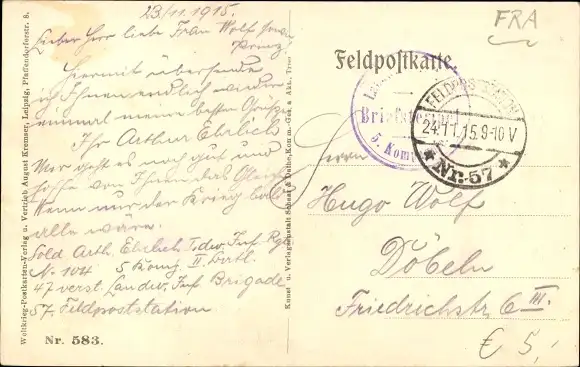 23/11.1915.
Lieber Herr liebe Frau Wolf
Hiermit übersende
ich Ihnen endlich wieder
einmal meine besten Grüße
Ihr Arthur Ehrlich
Mir geht es gut und
hoffe von Ihnen das Gleiche
Wenn nur der Krieg bald
alle wäre.
Sold. Arth. Ehrlich Ldw. Inf. Rgt.
N. 104 5 Komp. II. Batl.
47 verst. Landw. Inf Brigade
57. Feldpoststation
Nr. 583.
Weltkrieg-Postkarten-Verlag u. Vertrieb August Kremser, Leipzig, Pfaffendorferstr. 8.
Kunst u. Verlagsanstalt Schaar & Dathe, Kom.-Ges. a. Akt., Trier
FRA
Feldpostkarte.
Briefstempel
5. Komp.
FELDPOSTSTATION
24.11.15.9-10V
Nr. 57
Herrn
Hugo Wolf
Döbeln
Friedrichstr. 6 III.
€ 5,-